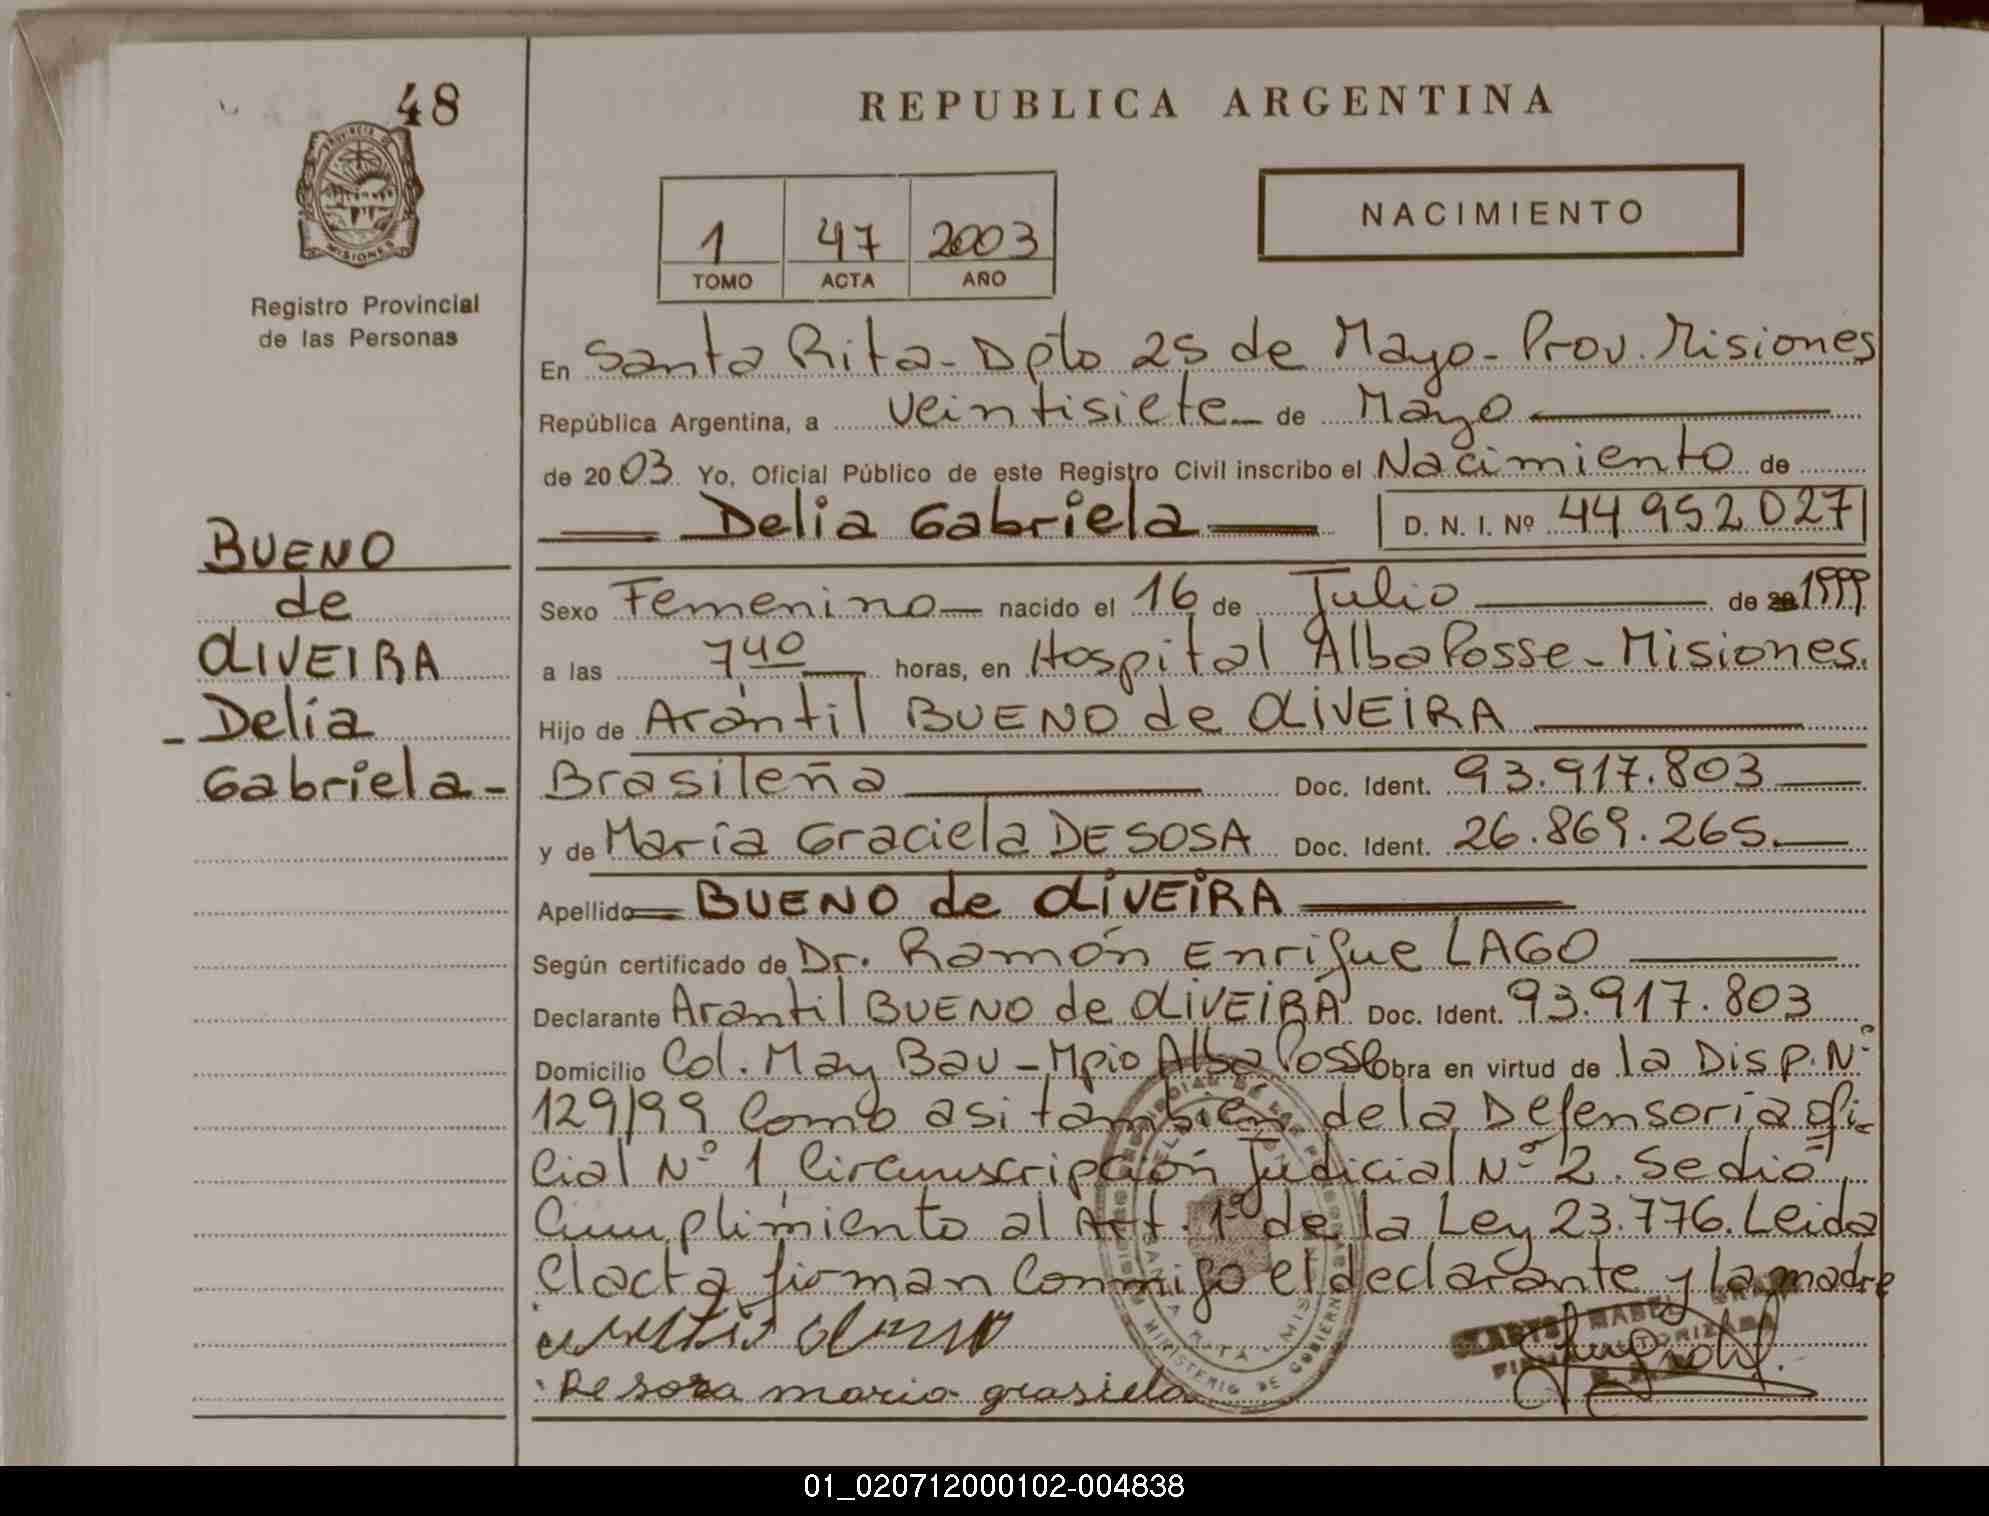 48
PROVINCIA DE
MISIONES
Registro Provincial
de las Personas
BUENO
de
OLIVEIRA
- Delia
Gabriela -
REPUBLICA ARGENTINA
1 47 2003
TOMO ACTA AÑO
NACIMIENTO
En Santa Rita - Dpto 25 de Mayo - Prov. Misiones
República Argentina, a veintisiete de Mayo
de 2003 Yo, Oficial Público de este Registro Civil inscribo el Nacimiento de
Delia Gabriela D. N. I. Nº 44 952 027
Sexo Femenino nacido el 16 de Julio de 1999
a las 7 40 horas, en Hospital Alba Posse - Misiones.
Hijo de Arantil BUENO de OLIVEIRA
Brasileña Doc. Ident. 93.917.803
y de María Graciela DE SOSA Doc. Ident. 26.869.265
Apellido BUENO de OLIVEIRA
Según certificado de Dr. Ramón Enrique LAGO
Declarante Arantil BUENO de OLIVEIRA Doc. Ident. 93.917.803
Domicilio Col. May Bau - Mpio Alba Posse Obra en virtud de la Disp. Nº
129/99 Como asi tambien de la Defensoria ofi-
cial Nº 1 Circunscripción Judicial Nº 2. Se dio
Cumplimiento al Art. 1º de la Ley 23.776. Leida
el acta firman Conmigo el declarante y la madre
De soza maria grasiela
MABEL
MINISTERIO DE GOBIERNO
01_020712000102-004838